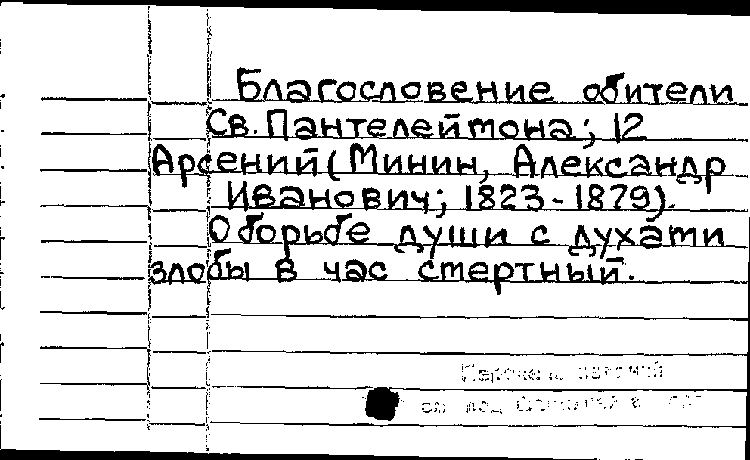 Благословение обители
Св. Пантелеймона; 12
Арсений (Минин, Александр
Иванович; 1823-1879).
О борьбе души с духами
злобы в час смертный.